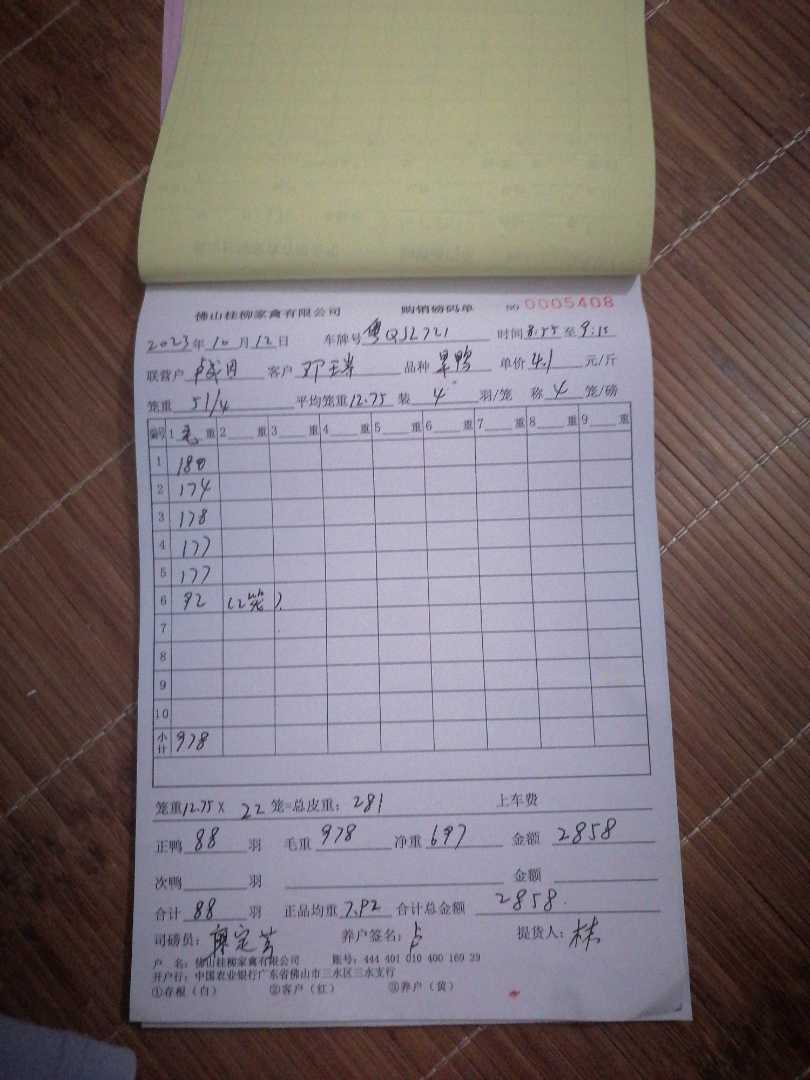 佛山桂柳家禽有限公司 购销磅码单 № 0005408
2023年10月12日 车牌号 粤QJL721 时间 8:55 至 9:15
联营户 客户 邓 品种 单价 4.1 元/斤
笼重 51/4 平均笼重 12.75 装 4 羽/笼 称 4 笼/磅
编号 1 毛 重 2 重 3 重 4 重 5 重 6 重 7 重 8 重 9 重
1 180
2 174
3 178
4 177
5 177
6 92 (2笼)
7
8
9
10
小计 978
笼重 12.75 × 22 笼=总皮重: 281 上车费
正鸭 88 羽 毛重 978 净重 697 金额 2858
次鸭 羽 金额
合计 88 羽 正品均重 7.92 合计总金额 2858.
司磅员: 养户签名: 提货人: 林
户 名: 佛山桂柳家禽有限公司 账号: 444 401 010 400 169 29
开户行: 中国农业银行广东省佛山市三水区三水支行
①存根(白) ②客户(红) ③养户(黄)